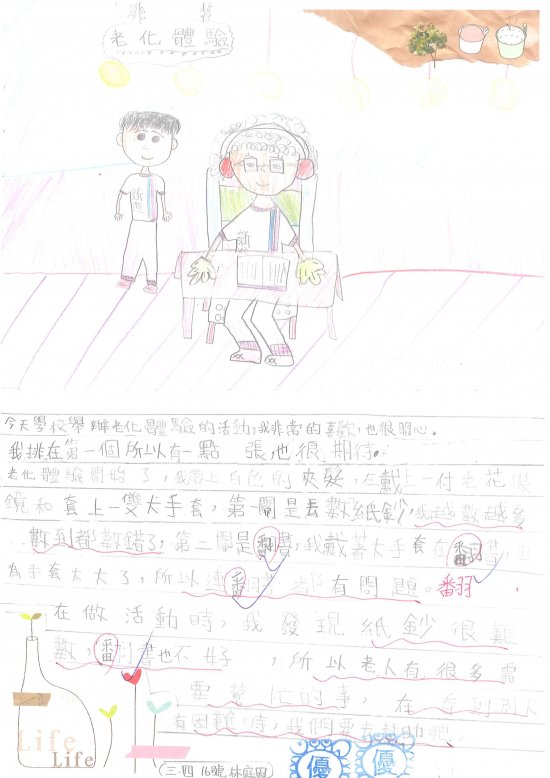 老化體驗
今天學校舉辦老化體驗的活動,我非常的喜歡,也很開心。
我排在第一個所以有一點 張也很期待。
老化體驗開始了,我帶上 色的 髮,在戴上一付老花眼
鏡和套上一雙大手套,第一關是丟數紙鈔,我越數越多
數到都數錯了,第二關是 書,我戴著大手套在
為手套太大了,所以連 都有問題。翻
在做活動時,我發現紙鈔很難
數, 書也不好 ,所以老人有很多需
要幫忙的事,在 別人
有困難時,我們要去幫助他。
Life
Life
三.四 16號 林庭
優 優